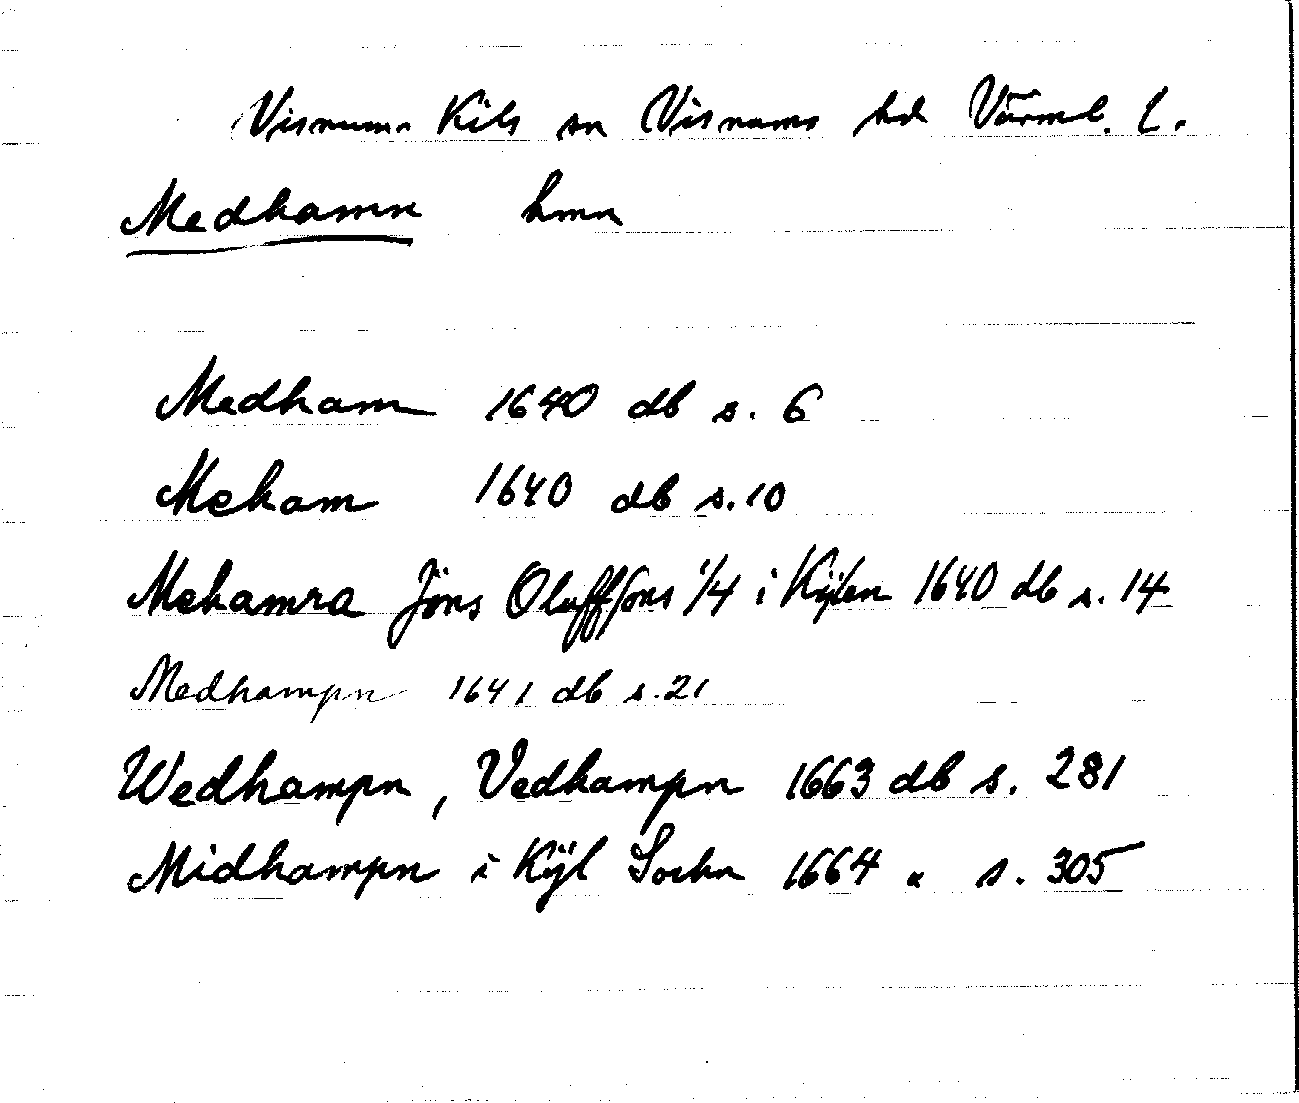 Visnums Kils sn Visnums hd Värml. l.
Medhamn hmn
Medham 1640 db s. 6
Meham 1640 db s. 10
Mehamra Jöns Oluffsons 1/4 i Kijlen 1640 db s. 14
Medhampn 1641 db s. 21
Wedhampn, Vedhampn 1663 db s. 281
Midhampn i Kÿl Sochn 1664 " s. 305